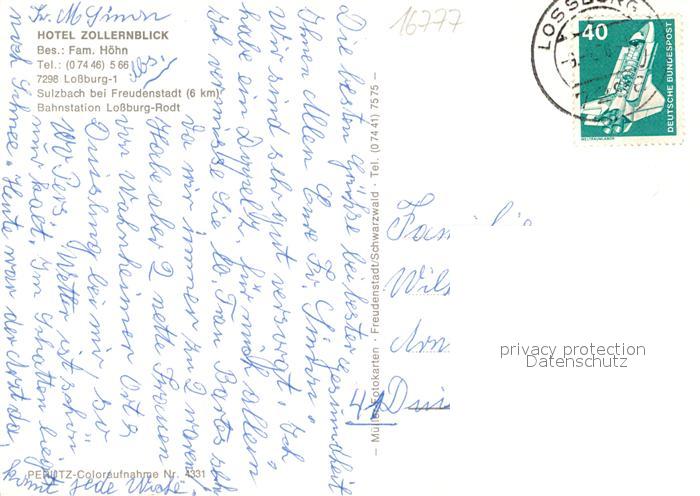 16777
HOTEL ZOLLERNBLICK
Bes.: Fam. Höhn
Tel.: (0 74 46) 5 66
7298 Loßburg-1
Sulzbach bei Freudenstadt (6 km)
Bahnstation Loßburg-Rodt
PERLITZ-Coloraufnahme Nr. 4331
Fotokarten · Freudenstadt/Schwarzwald · Tel. (0 74 41) 7575 –
Die besten Grüße bei bester Gesundheit
Ihnen Allen Eure Fr. Simon.
Wir sind sehr gut versorgt. Ich
habe ein Doppelz. für mich allein.
Ich vermisse Sie lb. Frau Bartos sehr
da wir immer zu 2 waren!
Habe aber 2 nette Frauen
von Wahnheimer Ort
Duissburg bei mir so
Wetter ist schön
nur kalt. Im Schatten liegt
noch Schnee. Heute war der Arzt da,
kommt jede Woche
Fr. M Simon
LOSSBURG
40
DEUTSCHE BUNDESPOST
WELTRAUMLABOR
Famili
Wils
Arn
41 Dui
privacy protection
Datenschutz